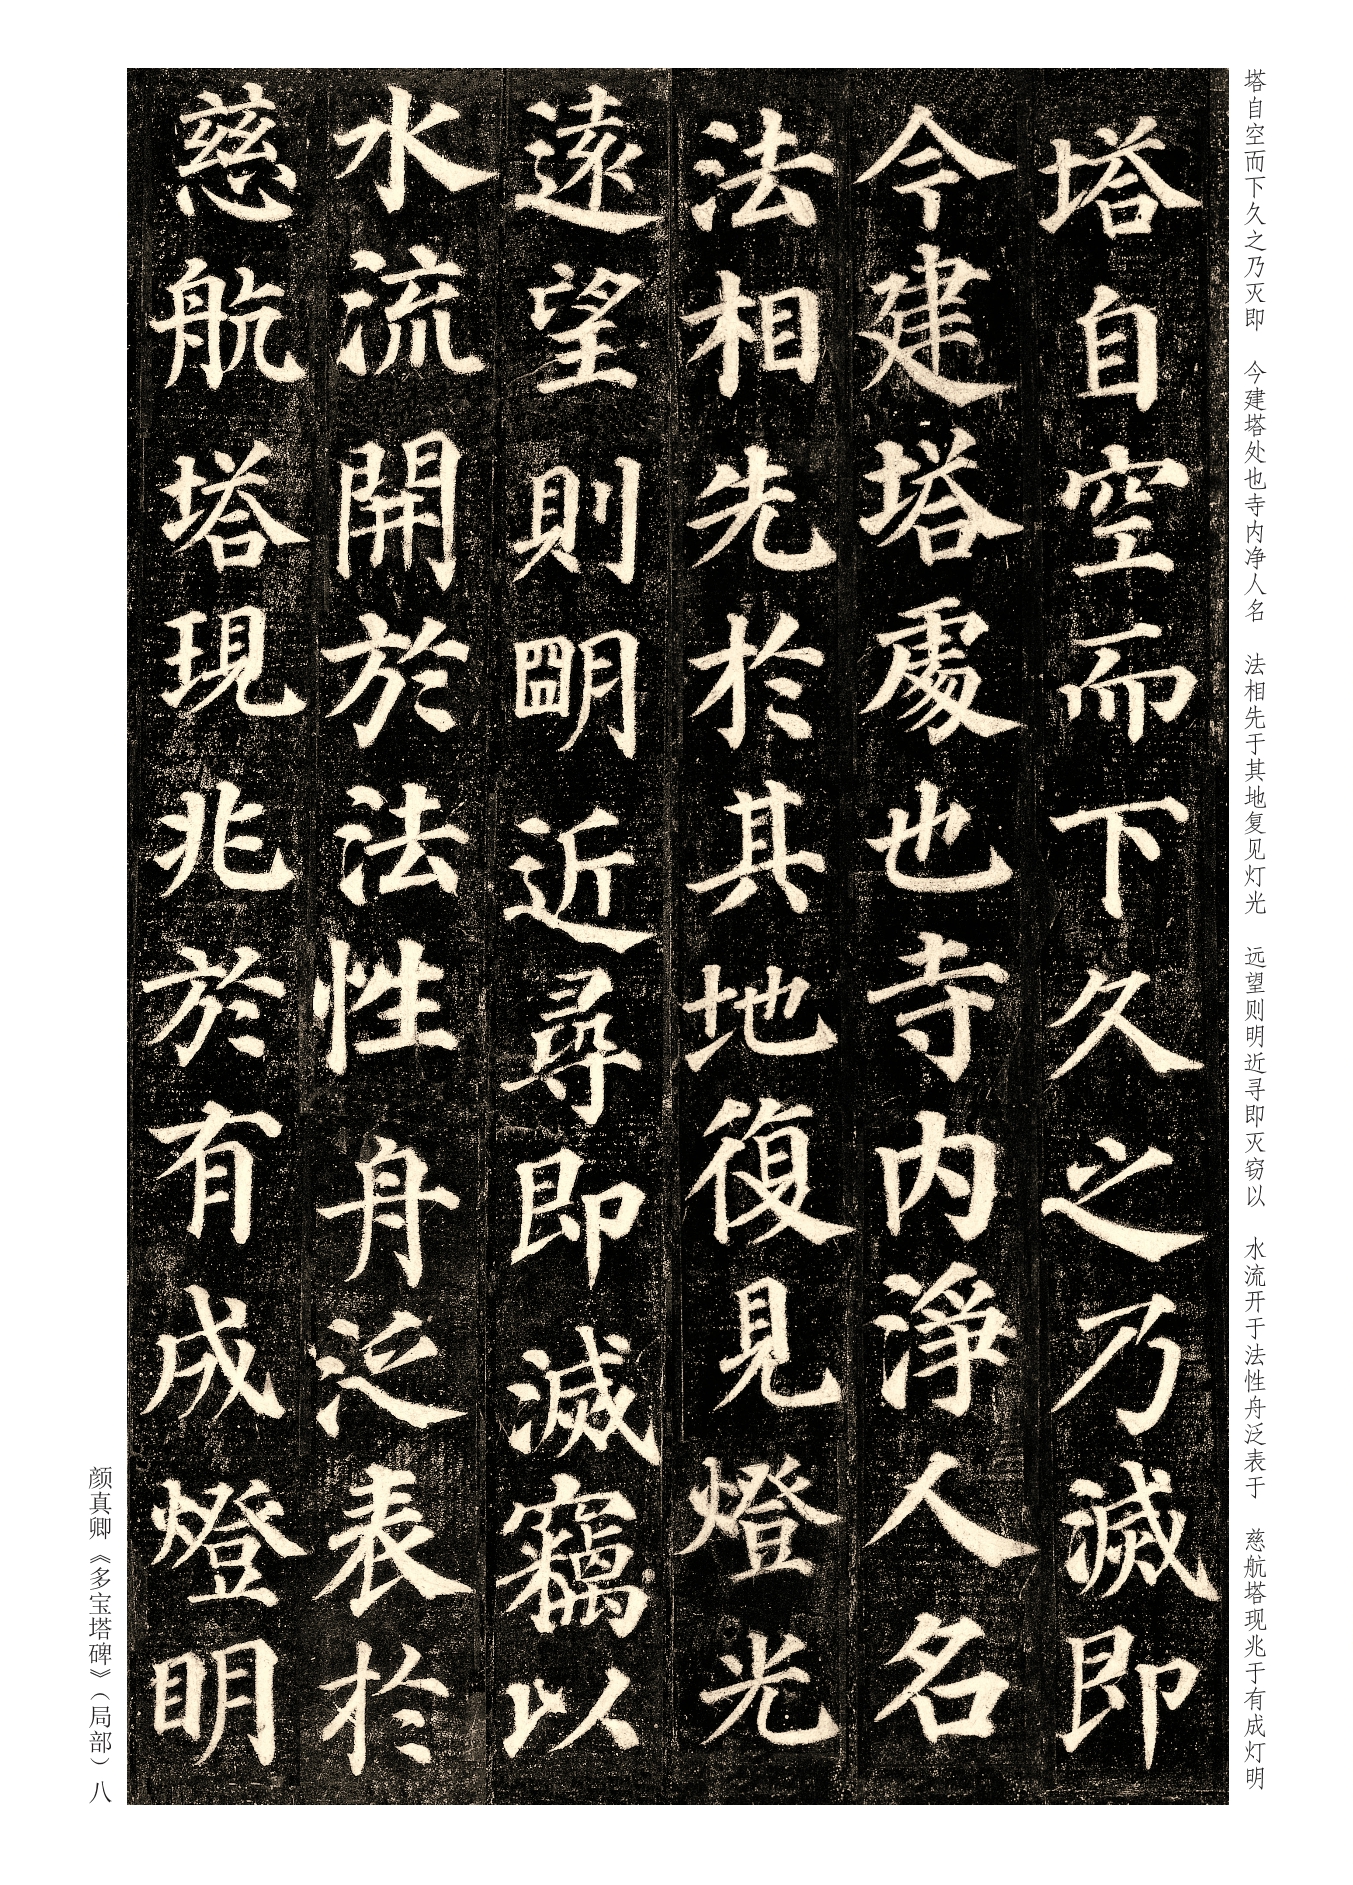 塔自空而下久之乃灭即 今建塔处也寺内净人名 法相先于其地复见灯光 远望则明近寻即灭窃以 水流开于法性舟泛表于 慈航塔现兆于有成灯明
塔自空而下久之乃滅即
今建塔處也寺内淨人名
法相先於其地復見燈光
遠望則朙近尋即滅竊以
水流開於法性舟泛表於
慈航塔現兆於有成燈明
颜真卿《多宝塔碑》（局部）八